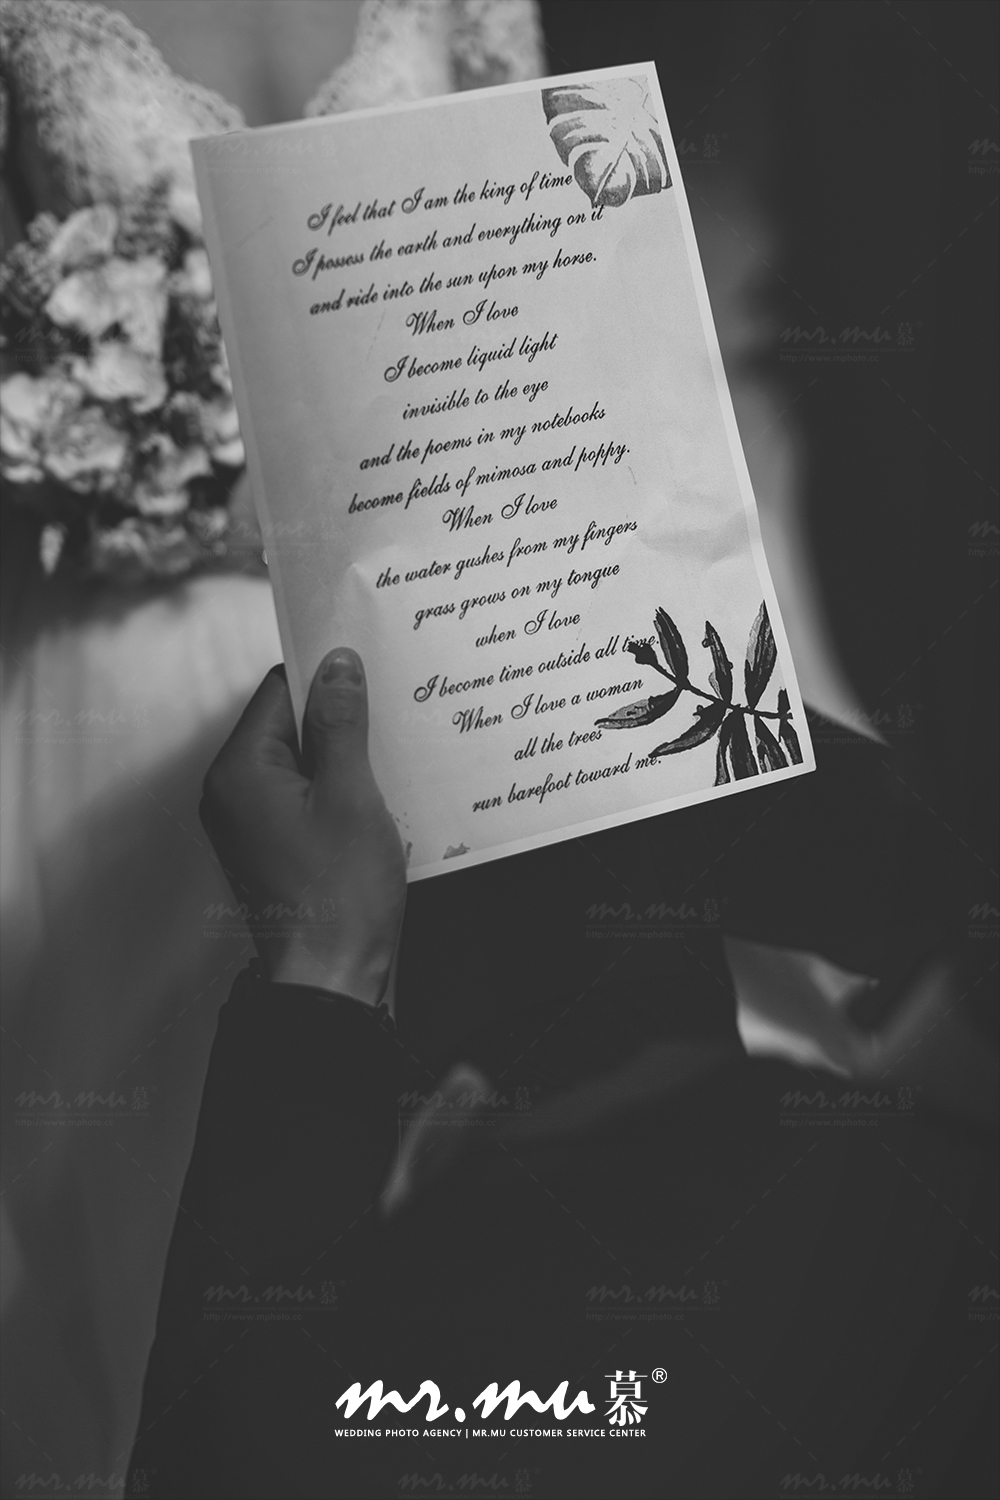 I feel that I am the king of time
I possess the earth and everything on it
and ride into the sun upon my horse.
When I love
I become liquid light
invisible to the eye
and the poems in my notebooks
become fields of mimosa and poppy.
When I love
the water gushes from my fingers
grass grows on my tongue
when I love
I become time outside all time.
When I love a woman
all the trees
run barefoot toward me.
mr.mu慕®
WEDDING PHOTO AGENCY | MR.MU CUSTOMER SERVICE CENTER
mr.mu慕
http://www.mphoto.cc